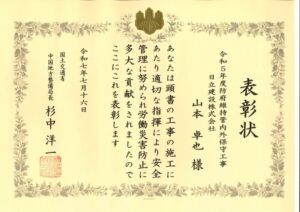 表彰状
令和5年度防府維持管内外保守工事
日立建設株式会社
山本 卓也 様
あなたは頭書の工事の施工に
あたり適切な指揮により安全
管理に努められ労働災害防止に
多大な貢献をされましたので
ここにこれを表彰します
令和七年七月十六日
国土交通省
中国地方整備局長 杉中洋一